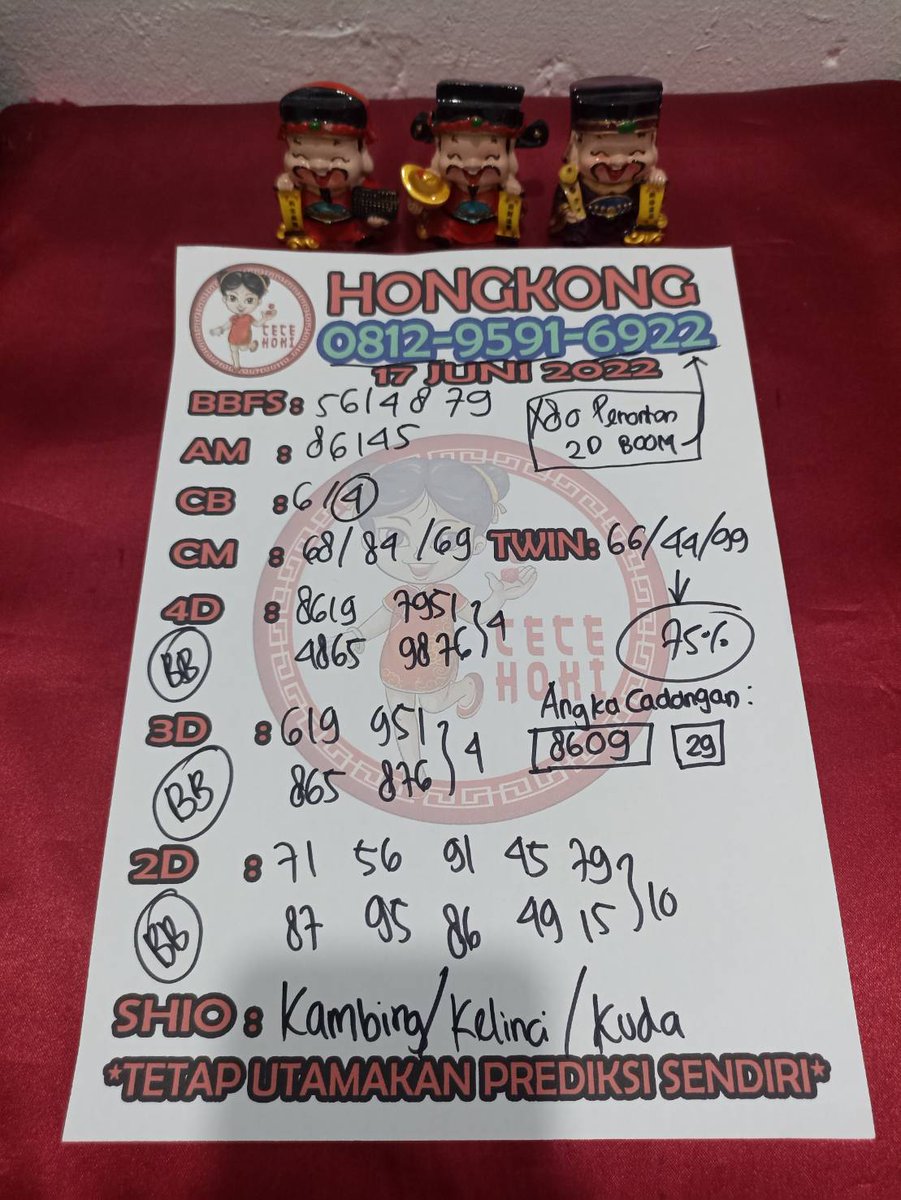 CECE
HOKI
HONGKONG
0812-9591-6922
17 JUNI 2022
BBFS: 5614879
AM : 86145
CB : 6/4
CM : 68/84/69 TWIN: 66/44/99
4D : 8619 7951
4865 9876 } 4
BB
75%
CECE
HOKI
Angka Cadangan:
8609 29
3D : 619 951
865 876 } 4
BB
2D : 71 56 91 45 79
87 95 86 49 15 } 10
BB
SHIO : Kambing/Kelinci/Kuda
*TETAP UTAMAKAN PREDIKSI SENDIRI*
2D BOOM